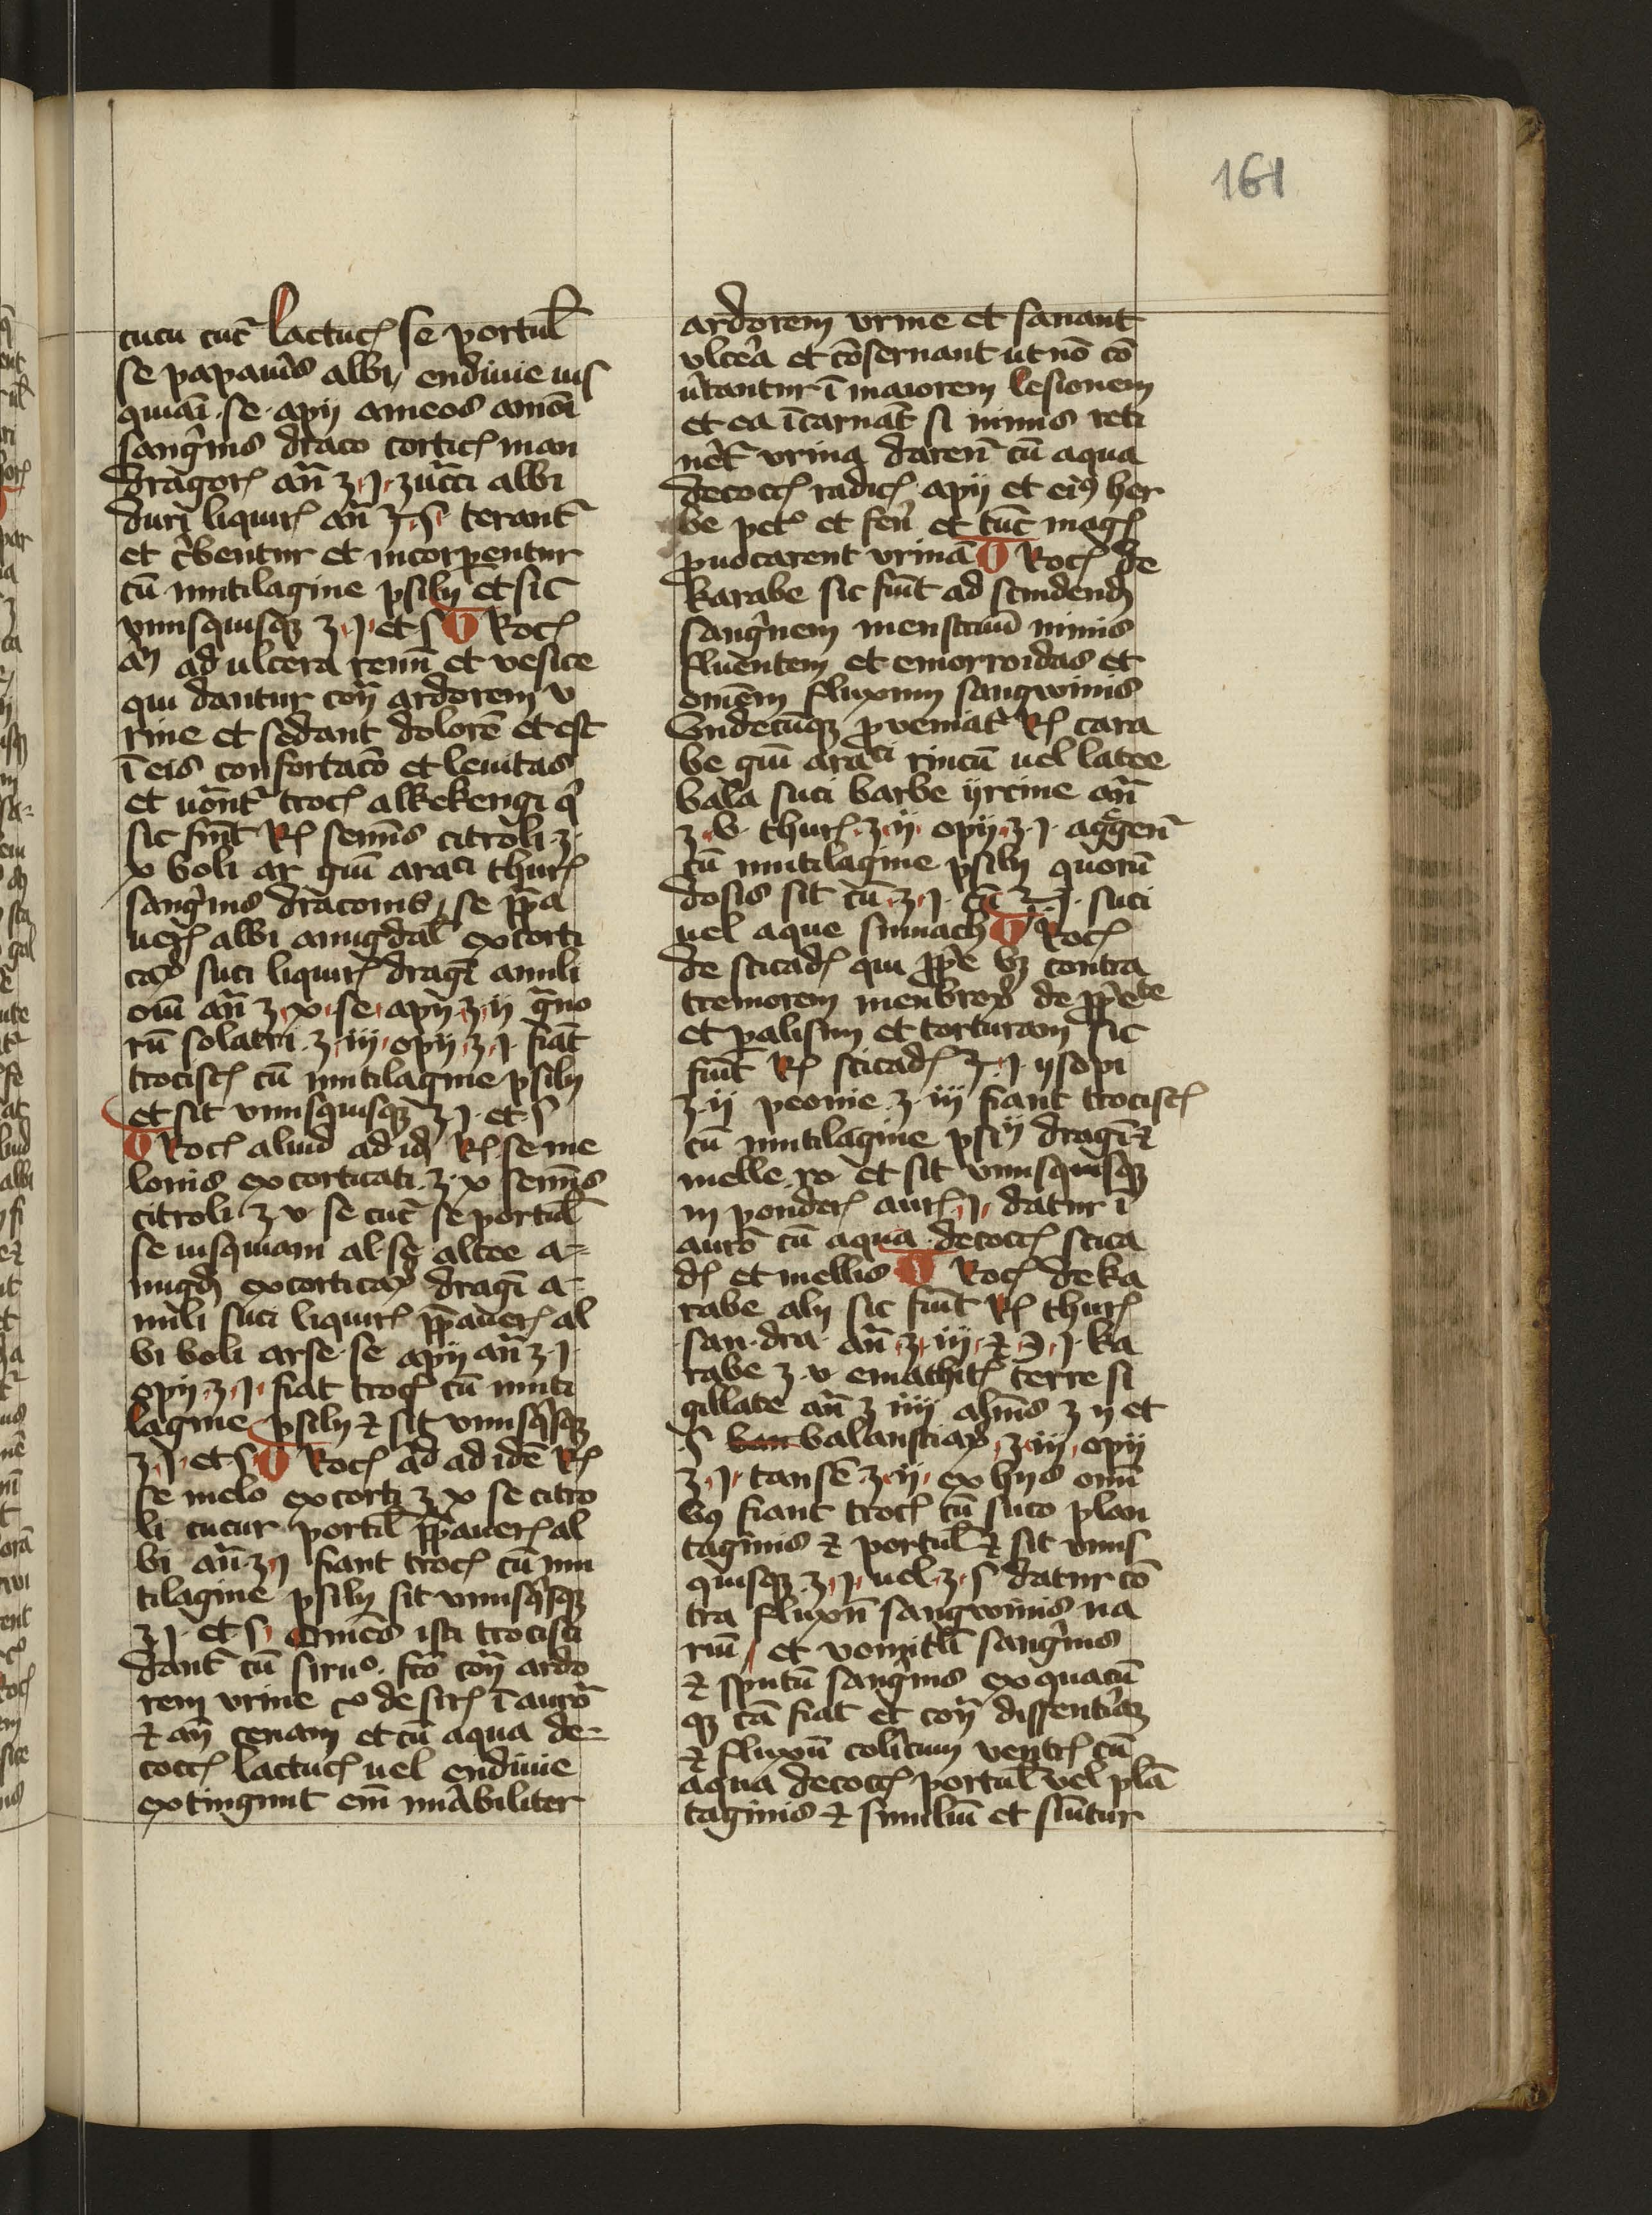 161
cucu cuc̄ lactuc̄ se portul̄
se papau̾is albi, endiuie ius
quiāi · se · apij ameos amōi
sang̾inis draco corticꝭ man
dragorꝭ an̄ ʒ · j · zucc̄i albi
duri liquirꝭ an̄ ʒ · s̄ terant᷑
et c̾bentur et incorp̱entur
cū mutilagine psilij et sit
vnusquisqꝫ ʒ · j · et s̄ Trocꝭ
an̄ ad ulcera renū et vesice
qui dantur con̄ ardorem v
rine et sedant dolorē et est
ī eis confortac̄o et lenitas
et uōnt᷑ trocꝭ alkekengi q̾
sic fiūt Rꝭ semīs citroli · ʒ ·
x boli ar gūi araci thurꝭ
sang̾inis draconis, se p̄pa
uerꝭ albi amigdal̄ excorti
caꝝ suci liquirꝭ draḡ amili
oīū an̄ ʒ · x · se · apij · ʒ · ij g̾no
rū solatri · ʒ · iij · opij · ʒ · j · fiāt
trociscꝭ cū mutilagine psilij
et sit vnusquisqꝫ ʒ j · et s̄
Trocꝭ aliud ad idꝭ Rꝭ · se me
lonis excorticati · ʒ · x semīs
citroli ʒ v · se cuc̄ se portul̄
se iusquiam al · se altee a=
migdꝭ excorticaꝝ draḡ a=
mili suci liquirꝭ p̄pauerꝭ al
bi boli arse · se apij an̄ ʒ · j ·
opij · ʒ · j · fiat trocꝭ cū muti
lagine psilij ⁊ sit vnusq̾sqꝫ
ʒ · j · et s̄ Trocꝭ ad ad idē Rꝭ
se melo excorti ʒ x se citro
li cucur portul̄ p̄pauerꝭ al
bi an̄ ʒ j fiant trocꝭ cū mu
tilagine psilij sit vnusq̾sqꝫ
ʒ j · et s̄ · Omēs isti trocisci
dant᷑ cū siruº · fc̄o con̄ ardo
rem vrine de sirꝭ ī aurō
⁊ an̄ cenam et cū aqua de=
coccꝭ lactucꝭ uel endiuie
extingunt em̄ mi̾abiliter
ardorem vrine et sanant
vlcera et cōseruant ut nō cō
u̾tantur ī maiorem lesionem
et ea īcarnāt si nimis reti
nēt᷑ vrina darent᷑ cū aqua
decoccꝭ radicꝭ apij et ei᷒ her
be petꝭ et feni et tūc magꝭ
ꝓuocarent vrinā Trocꝭ de
karabe sic fiūt ad scindendꝭ
sang̾nem menstruū nimis
fluentem et emorroidas et
omēm fluxum sangwinis
Vndecūqꝫ ꝓueniat᷑ Rꝭ cara
be gūi araci rincū uel latee
bala suci barbe yrcine an̄
ʒ · v · thurꝭ · ʒ · ij · opij · ʒ · j · aggen᷑
cū mutilagine psilij quorū
dosis sit cū · ʒ · j · cū ʒ · j · suci
uel aque sumach Trocꝭ
de sticadꝭ qui p̄pe vꝫ contra
tremorem menbroꝝ de p̄p̾ete
et palisim et torturam sic
fiūt Rꝭ sticadꝭ ʒ · j · ysopi
ʒ · ij peonie · ʒ · iij fiant trociscꝭ
cū mutilagine psiij draḡ ⁊
melle · ro · et sit vnusquisqꝫ
in ponderꝭ aurꝭ · j · datur ī
aurō cū aqua decoccꝭ stica
dꝭ et mellis Trocꝭ de ka
rabe alij sic fiūt Rꝭ thurꝭ
san · dra · an̄ · ʒ · iij · ⁊ ℈ · j · ka
rabe ʒ · v emathitꝭ terre si
gillate an̄ ʒ iiij alum̄s ʒ ij et
s̄ balaustiaꝝ · ʒ · iij · opij
ʒ · j · tansē · ʒ · ij · ex hijs omī
bꝰ fiant trocꝭ cū suco plan
taginis ⁊ portul̄ ⁊ sit vnus
quisqꝫ · ʒ · j · uel · ʒ · s̄ datur cō
tra fluxū sangwinis na
riū, et vomitū sang̾inis
⁊ sputū sang̾inis ex quacū
qꝫ cā fiat et con̄ dissent̾iaꝫ
⁊ fluxū colicum ventrꝭ cū
aqua decoccꝭ portul̄ vel plā
taginis ⁊ similiū et sūntur